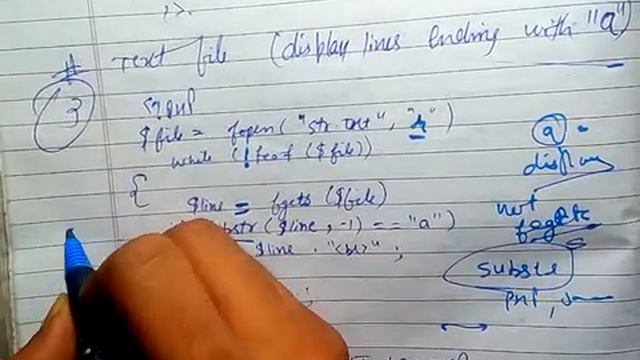 # Text file (display lines Ending with "a")
3
$file = fopen("str.txt", "r")
while (!feof ($file))
{
$line = fgets ($file)
substr ($line, -1) == "a")
$line . "<br>" ;
;
a
display
not
substr